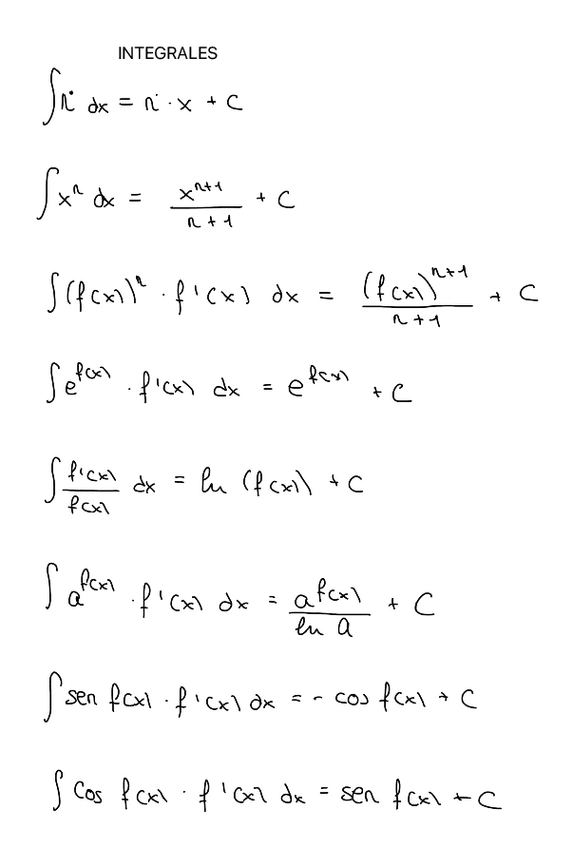 INTEGRALES
∫n dx = n · x + C
∫xⁿ dx = xⁿ⁺¹/(n+1) + C
∫(f(x))ⁿ · f'(x) dx = (f(x))ⁿ⁺¹/(n+1) + C
∫e^f(x) · f'(x) dx = e^f(x) + C
∫f'(x)/f(x) dx = ln (f(x)) + C
∫a^f(x) · f'(x) dx = a^f(x)/ln a + C
∫sen f(x) · f'(x) dx = - cos f(x) + C
∫cos f(x) · f'(x) dx = sen f(x) + C